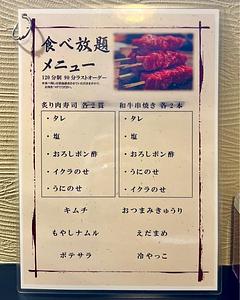 食べ放題
メニュー
120分制 90分ラストオーダー
炙り肉寿司 各2貫
・タレ
・塩
・おろしポン酢
・イクラのせ
・うにのせ
和牛串焼き 各2本
・タレ
・塩
・おろしポン酢
・うにのせ
・イクラのせ
キムチ
おつまみきゅうり
もやしナムル
えだまめ
ポテサラ
冷やっこ